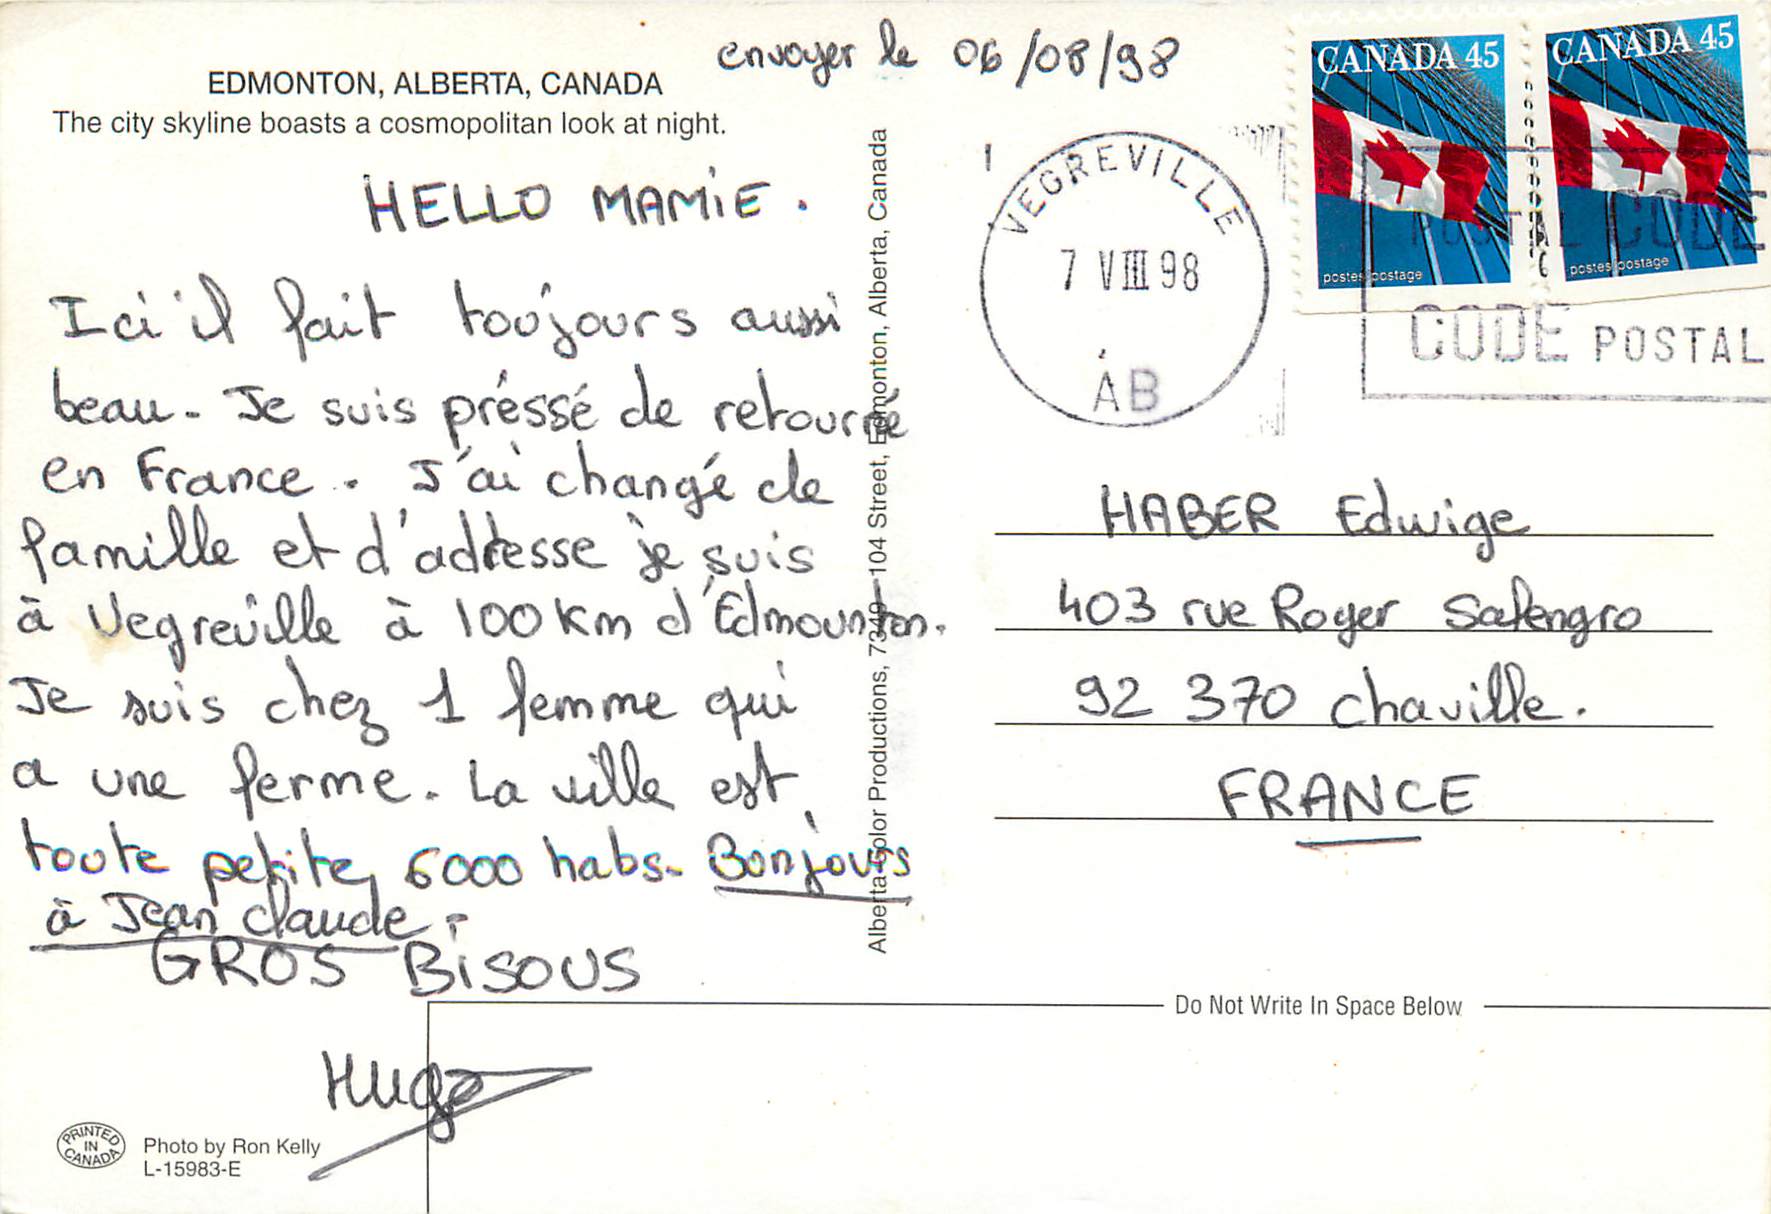 envoyer le 06/08/98
EDMONTON, ALBERTA, CANADA
The city skyline boasts a cosmopolitan look at night.
HELLO MAMiE.
Ici il fait toujours aussi
beau. Je suis préssé de retourné
en France. J'ai changé de
famille et d'adresse je suis
à Vegreville à 100 Km d'Edmounton.
Je suis chez 1 femme qui
a une ferme. La ville est
toute petite, 6000 habs. Bonjours
à Jean claude.
GROS BiSOUS
Hugo
PRINTED IN CANADA
Photo by Ron Kelly
L-15983-E
Alberta Color Productions, 7349-104 Street, Edmonton, Alberta, Canada
CANADA 45
postes/postage
CANADA 45
postes/postage
VEGREVILLE
7 VIII 98
AB
POSTAL CODE
CODE POSTAL
HABER Edwige
403 rue Roger Salengro
92 370 chaville.
FRANCE
Do Not Write In Space Below